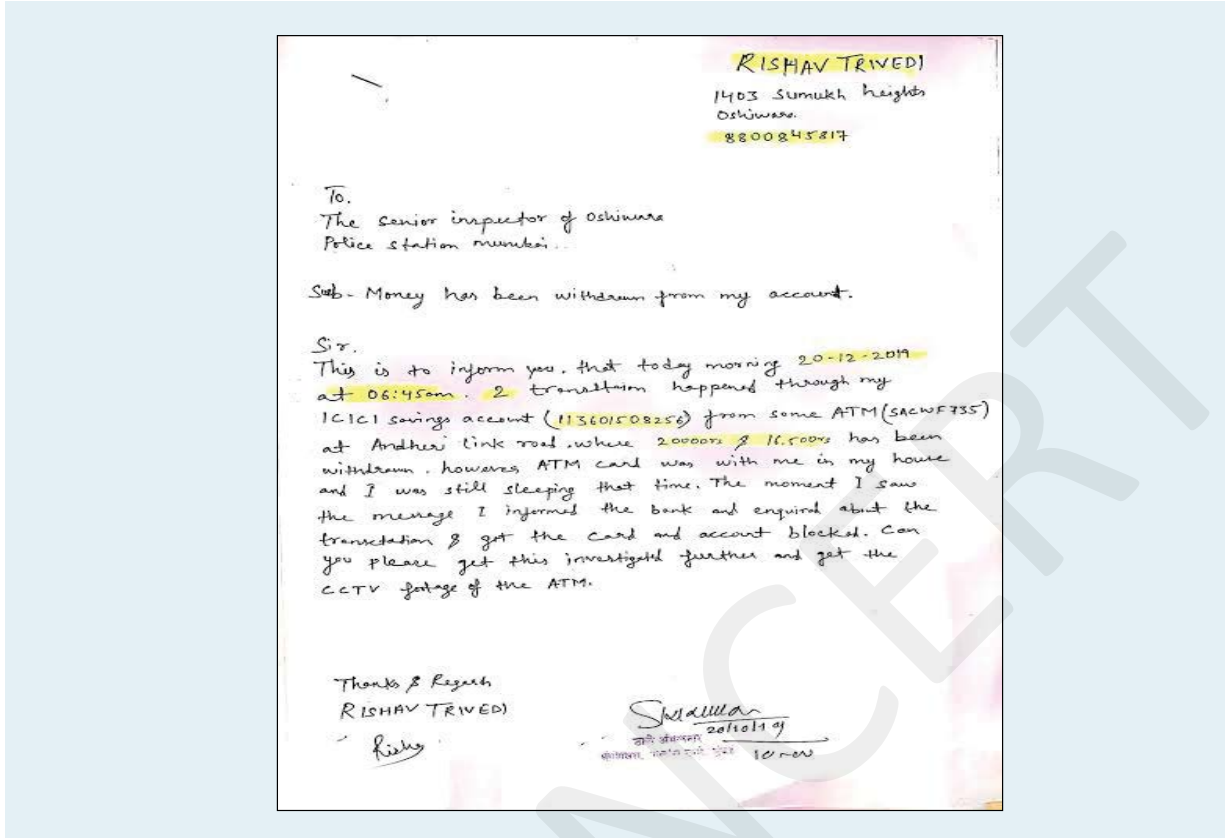 RISHAV TRIVEDI
1403 Sumukh heights
Oshiwara.
8800845817
To.
The senior inspector of Oshiwara
Police station mumbai..
Sub- Money has been withdrawn from my account.
Sir.
This is to inform you. that today morning 20-12-2019
at 06:45am. 2 happened through my
ICICI savings account (113601508256) from some ATM (SACWF735)
at Andheri link road. where 20000rs & 16,500rs has been
withdrawn. however ATM card was with me in my house
and I was still sleeping that time. The moment I saw
the message I informed the bank and enquired about the
& got the card and account blocked. Can
you please get this investigated further and get the
CCTV footage of the ATM.
Thanks & Regards
RISHAV TRIVEDI
20/10/19
NCERT